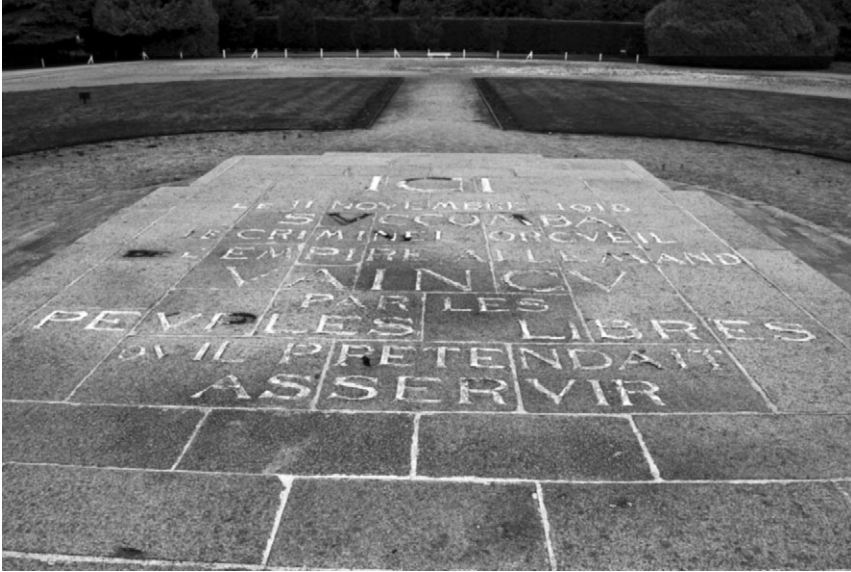 ICI
LE 11 NOVEMBRE 1918
SVCCOMBA
LE CRIMINEL ORGVEIL
DE L'EMPIRE ALLEMAND
VAINCV
PAR LES
PEVPLES LIBRES
QV'IL PRETENDAIT
ASSERVIR